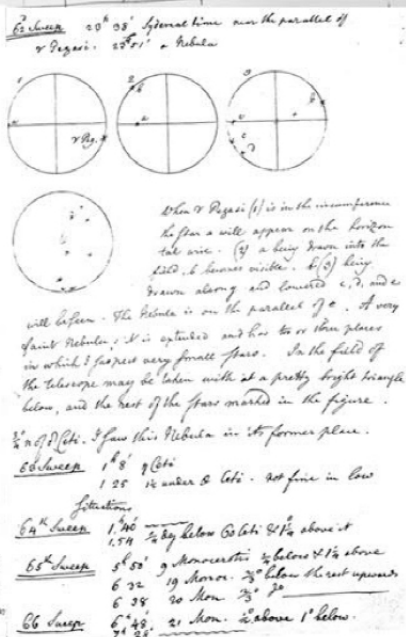 62 Sweep 23h 38' Sydereal time near the parallel of
γ Pegasi. 23h 51' a Nebula
1 2 3
a γ Peg. b a b e c d
When γ Pegasi (1) is in the circumference
the star a will appear on the horizon
tal wire. (2) a being drawn into the
field, b becomes visible. b (3) being
drawn along and lowered c, d, and e
will be seen. The Nebula is on the parallel of e. A very
faint Nebula; it is extended and has two or three places
in which I suspect very small stars. In the field of
the telescope may be taken with it a pretty bright triangle
below, and the rest of the stars marked in the figure.
n of δ Ceti. I saw this Nebula in its former place.
63 Sweep 1h 8' η Ceti
1 25 1½ under θ Ceti. not fine in low
situations
64th Sweep 1h 40'
1.54 deg below Ceti & above it
65th Sweep 5h 50' 9 Monocerotis below & above
6 32 19 Monoc. below the rest upwards
6 38 20 Mon.
66 Sweep 6h 48' 21 Mon. above 1° below.